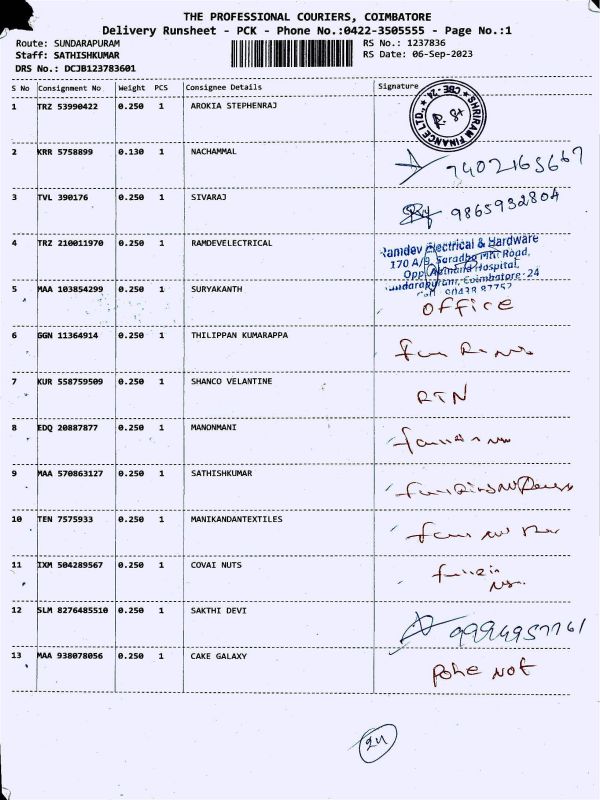 THE PROFESSIONAL COURIERS, COIMBATORE
Delivery Runsheet - PCK - Phone No.:0422-3505555 - Page No.:1
Route: SUNDARAPURAM RS No.: 1237836
Staff: SATHISHKUMAR RS Date: 06-Sep-2023
DRS No.: DCJB123783601
S No Consignment No Weight PCS Consignee Details Signature
1 TRZ 53990422 0.250 1 AROKIA STEPHENRAJ
SHRIRAM FINANCE LTD., CBE - 24.
2 KRR 5758899 0.130 1 NACHAMMAL 7402165667
3 TVL 390176 0.250 1 SIVARAJ 9865932804
4 TRZ 210011970 0.250 1 RAMDEVELECTRICAL
Ramdev Electrical & Hardware
170 A/9, Road,
Opp Hospital,
Sundarapuram, Coimbatore - 24
5 MAA 103854299 0.250 1 SURYAKANTH office
6 GGN 11364914 0.250 1 THILIPPAN KUMARAPPA
7 KUR 558759509 0.250 1 SHANCO VELANTINE RTN
8 EDQ 20887877 0.250 1 MANONMANI
9 MAA 570863127 0.250 1 SATHISHKUMAR
10 TEN 7575933 0.250 1 MANIKANDANTEXTILES
11 IXM 504289567 0.250 1 COVAI NUTS
12 SLM 8276485510 0.250 1 SAKTHI DEVI
13 MAA 938078056 0.250 1 CAKE GALAXY Not
24